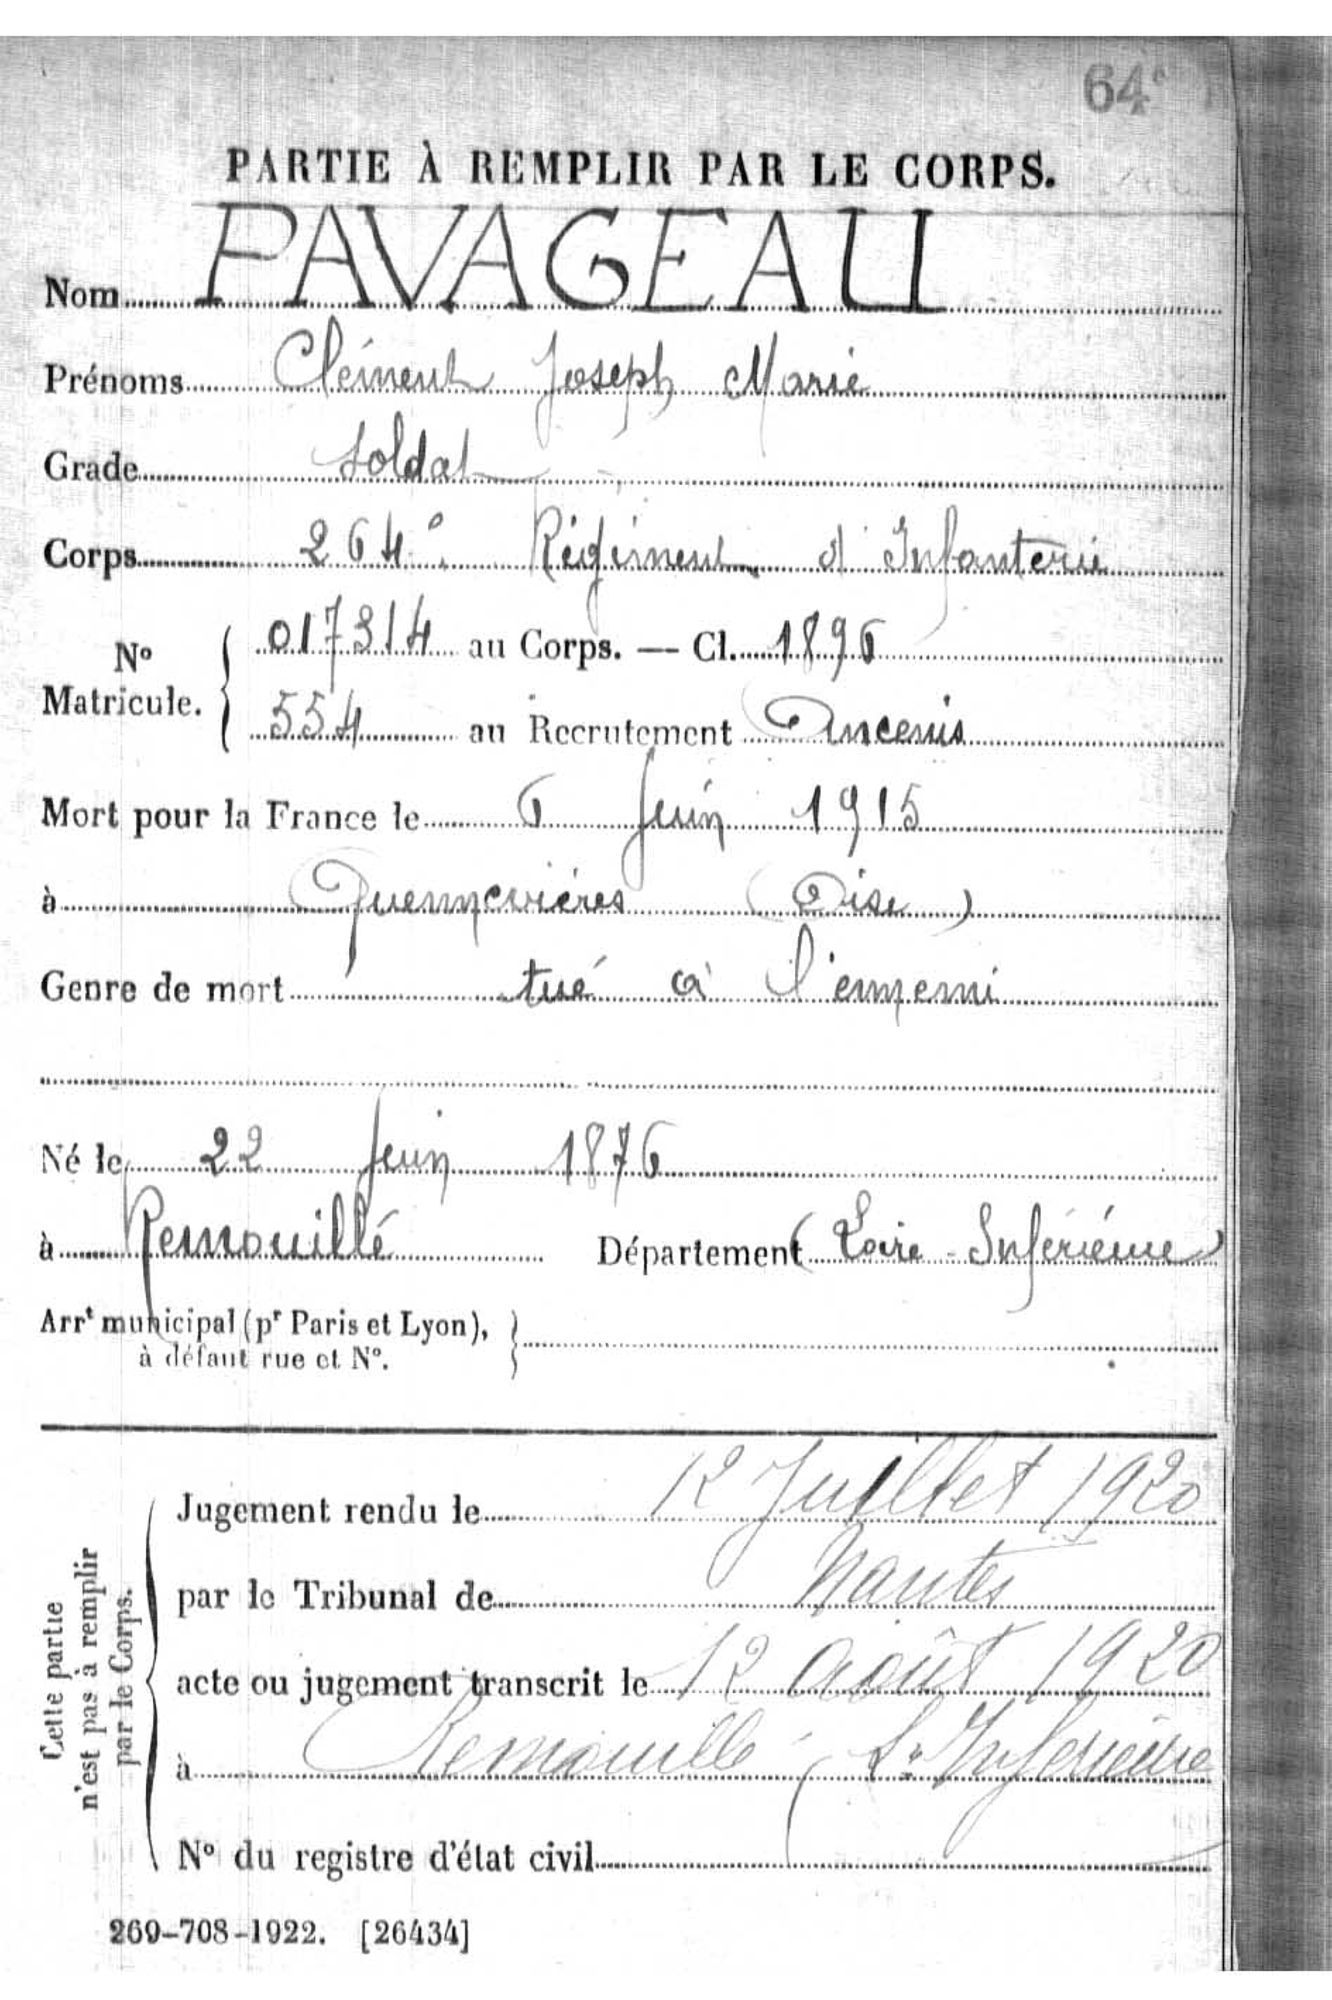 64e
PARTIE À REMPLIR PAR LE CORPS.
Nom PAVAGEAU
Prénoms Clément Joseph Marie
Grade Soldat
Corps 264e Régiment d'Infanterie
No Matricule. { 017314 au Corps. — Cl. 1896
554 au Recrutement Ancenis
Mort pour la France le 6 Juin 1915
à Quennevières (Oise)
Genre de mort tué à l'ennemi
Né le 22 Juin 1876
à Remouillé Département (Loire-Inférieure)
Arrt municipal (pr Paris et Lyon), }
à défaut rue et No.
Cette partie
n'est pas à remplir
par le Corps.
Jugement rendu le 12 Juillet 1920
par le Tribunal de Nantes
acte ou jugement transcrit le 12 Août 1920
à Remouillé (Lre Inférieure
No du registre d'état civil
269-708-1922. [26434]